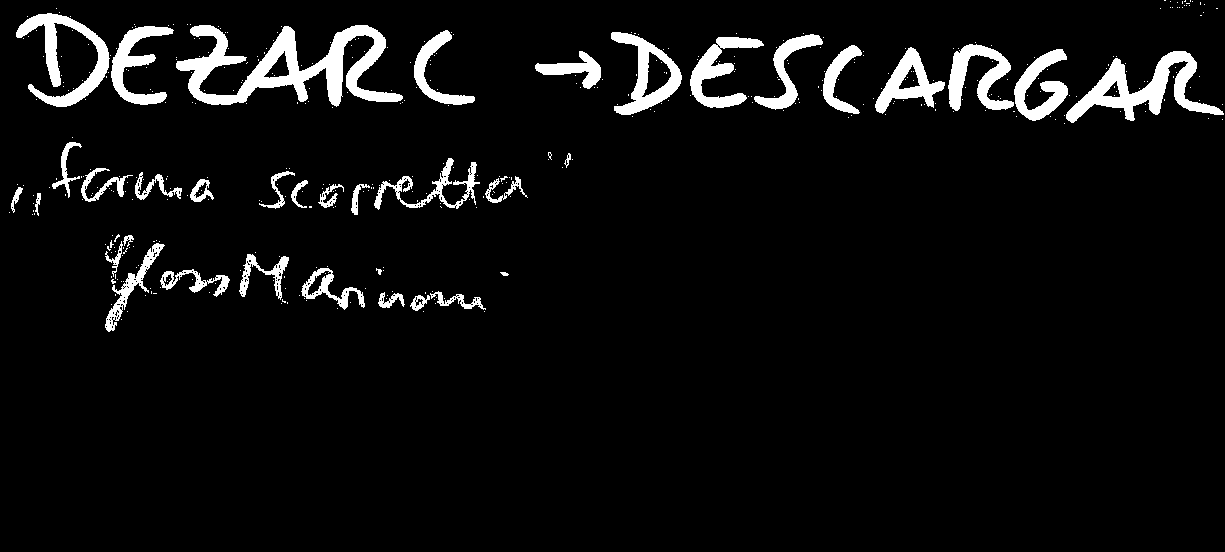 DEZARC → DESCARGAR
„forma scorretta”
GlossMarinoni